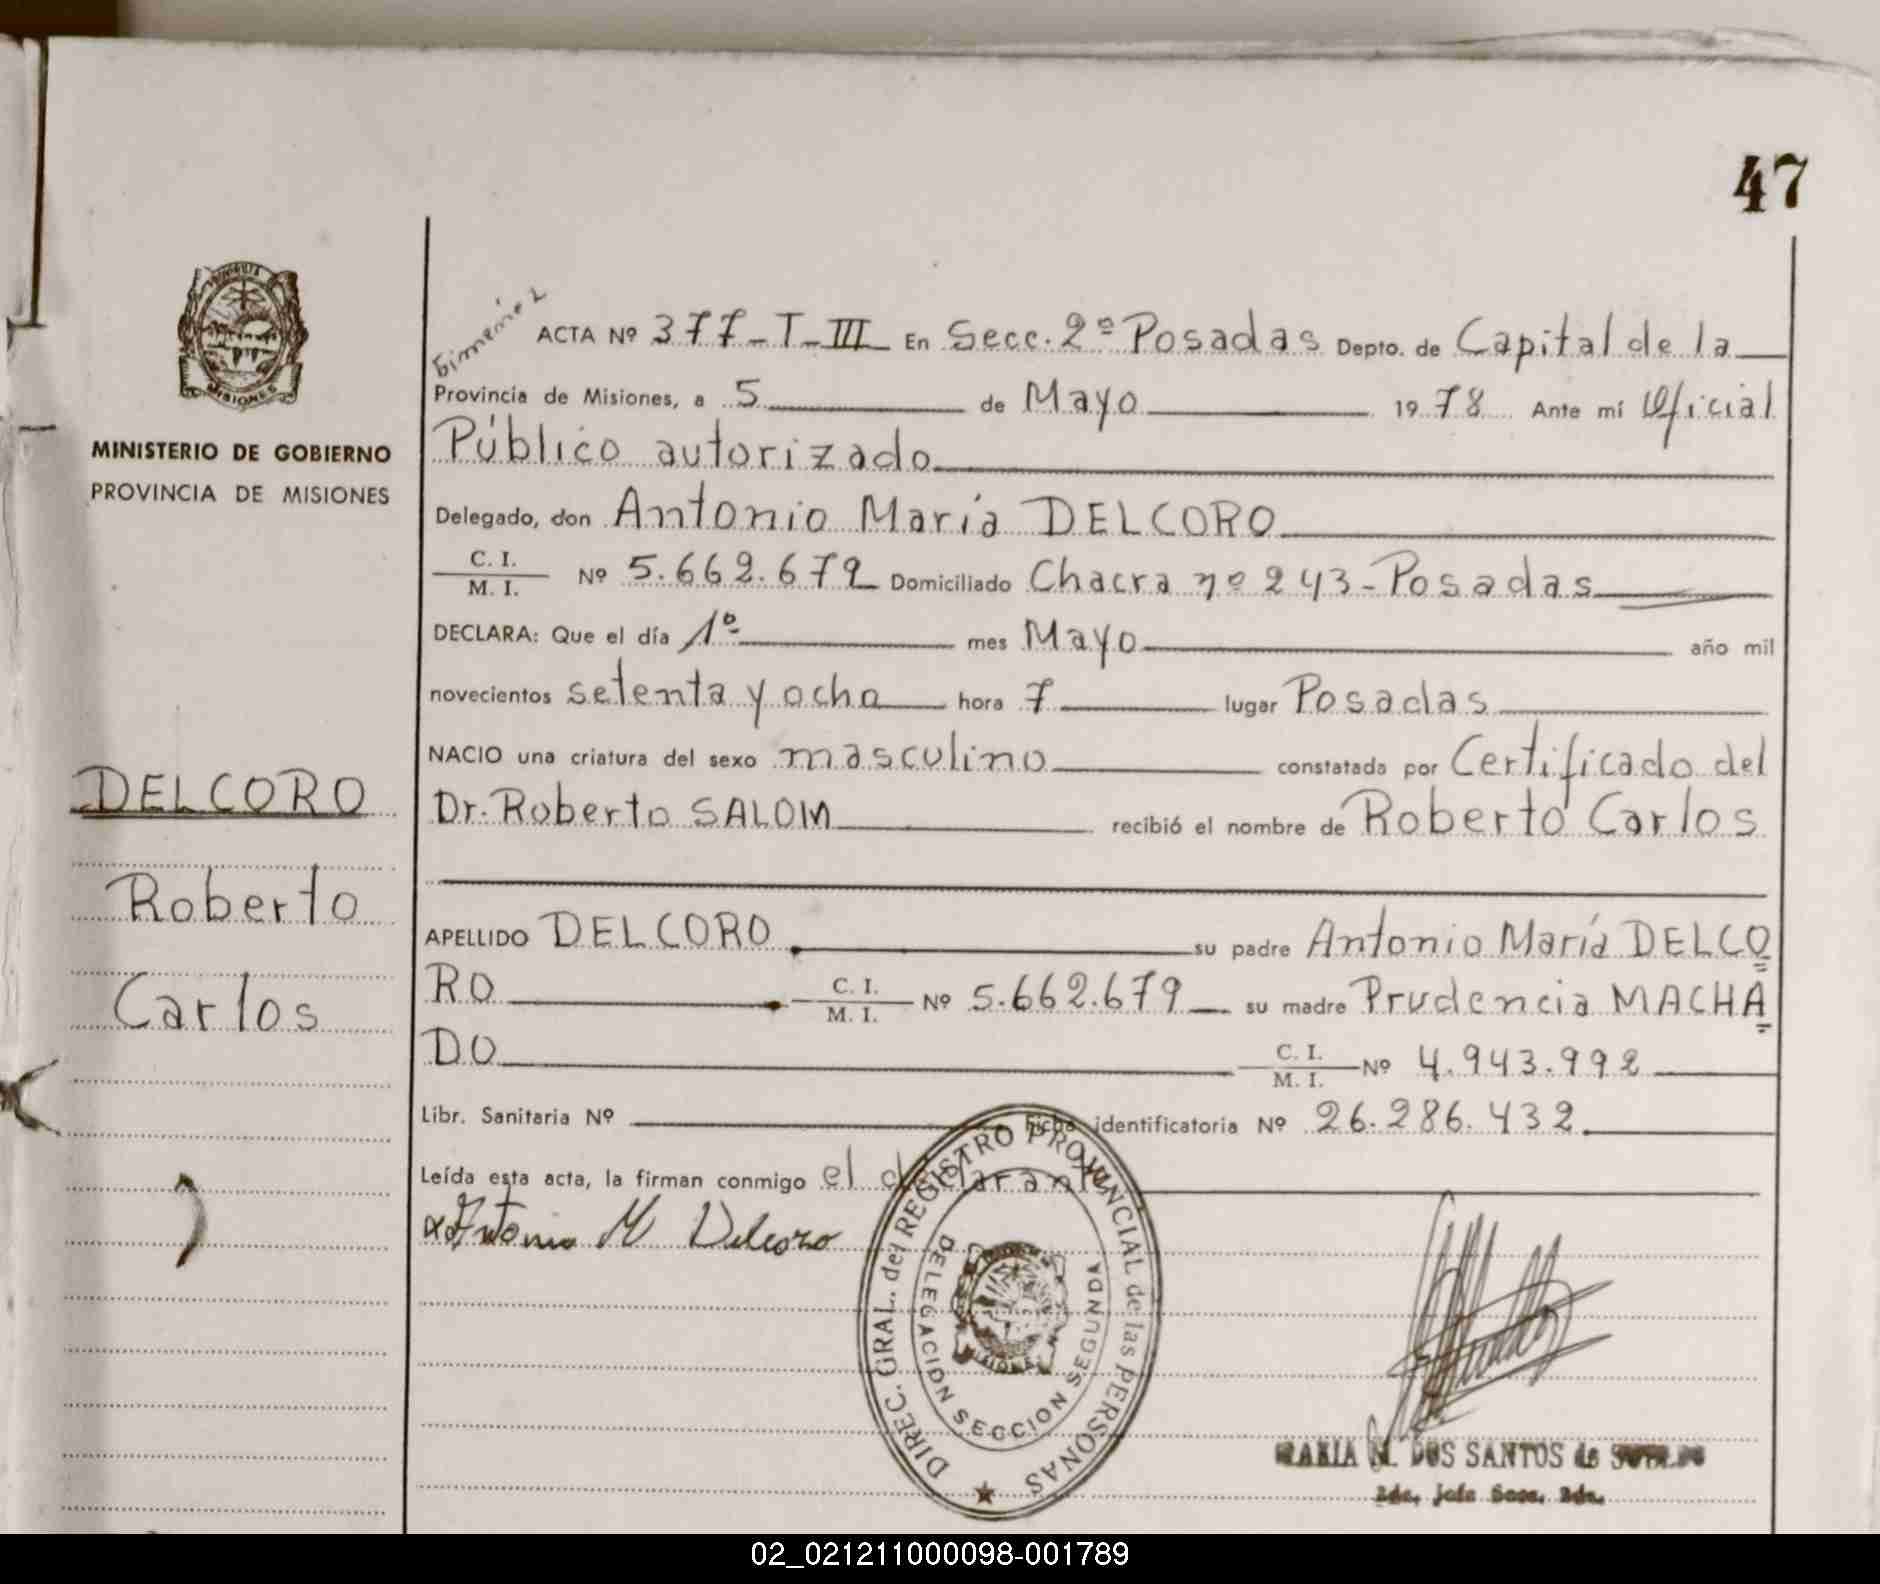 47
MISIONES
MINISTERIO DE GOBIERNO
PROVINCIA DE MISIONES
DELCORO
Roberto
Carlos
Gimenez
ACTA Nº 377-T-III En Secc. 2º Posadas Depto. de Capital de la
Provincia de Misiones, a 5 de Mayo 1978 Ante mí Oficial
Público autorizado
Delegado, don Antonio María DELCORO
C. I.
M. I. Nº 5.662.679 Domiciliado Chacra nº 243-Posadas
DECLARA: Que el día 1º mes Mayo año mil
novecientos setenta y ocho hora 7 lugar Posadas
NACIO una criatura del sexo masculino constatada por Certificado del
Dr. Roberto SALOM recibió el nombre de Roberto Carlos
APELLIDO DELCORO su padre Antonio María DELCO
RO C. I. M. I. Nº 5.662.679 su madre Prudencia MACHA
DO C. I. M. I. Nº 4.943.992
Libr. Sanitaria Nº Ficha identificatoria Nº 26.286.432
Leída esta acta, la firman conmigo el declarante
Antonio M Delcoro
DIREC. GRAL. del REGISTRO PROVINCIAL de las PERSONAS
DELEGACION SECCION SEGUNDA
MARIA M. DOS SANTOS de
2da. Jefa Secc. 2da.
02_021211000098-001789